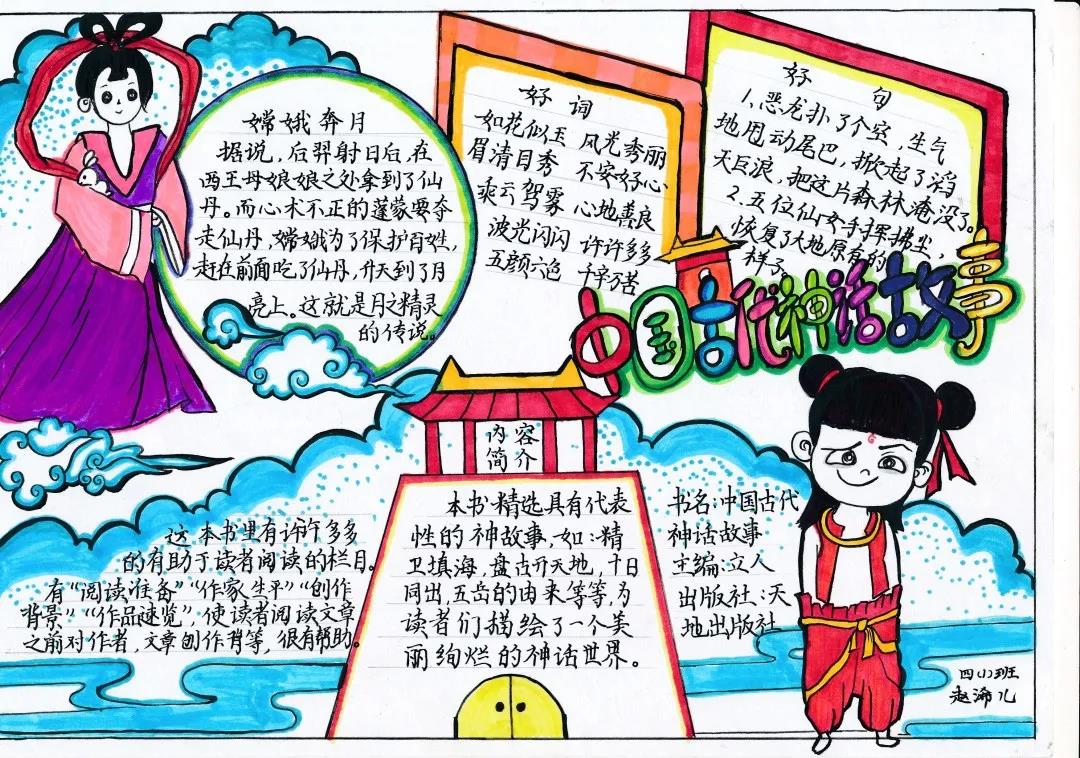 嫦娥奔月
据说,后羿射日后,在
西王母娘娘之处拿到了仙
丹。而心术不正的蓬蒙要夺
走仙丹,嫦娥为了保护百姓,
赶在前面吃了仙丹,升天到了月
亮上。这就是月之精灵
的传说。
好词
如花似玉 风光秀丽
眉清目秀 不安好心
乘云驾雾 心地善良
波光闪闪 许许多多
五颜六色 千辛万苦
好句
1、恶龙扑了个空,生气
地甩动尾巴,掀起了滔
天巨浪,把这片森林淹没了。
2、五位仙女手挥拂尘,
恢复了大地原有的
样子。
中国古代神话故事
内容
简介
本书精选具有代表
性的神故事,如:精
卫填海,盘古开天地,十日
同出,五岳的由来等等,为
读者们描绘了一个美
丽绚烂的神话世界。
书名:中国古代
神话故事
主编:立人
出版社:天
地出版社
这本书里有许许多多
的有助于读者阅读的栏目。
有“阅读准备”“作家生平”“创作
背景”“作品速览”,使读者阅读文章
之前对作者,文章创作背等,很有帮助。
四(1)班
赵浠儿